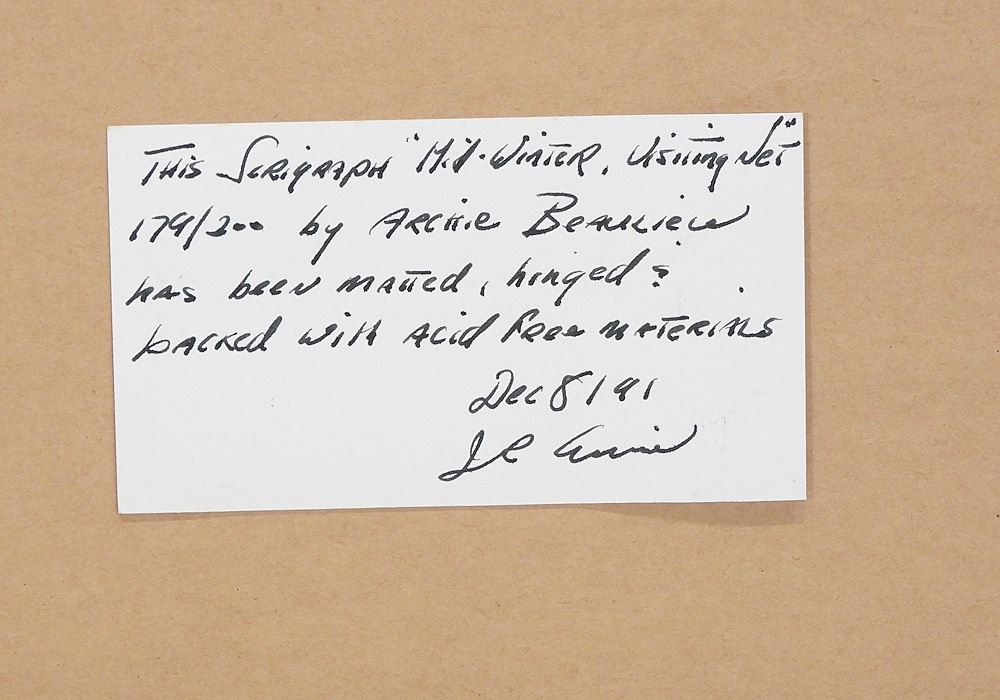 This Serigraph "Mid-Winter, Visiting Net"
179/200 by Archie Beaulieu
has been matted, hinged &
backed with acid free materials
Dec 8/91